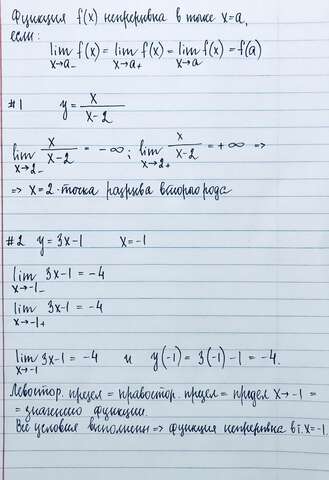 Функция f(x) непрерывна в точке x=a,
если:
lim f(x) = lim f(x) = lim f(x) = f(a)
x→a- x→a+ x→a
#1 y = x/(x-2)
lim x/(x-2) = -∞; lim x/(x-2) = +∞ =>
x→2- x→2+
=> x=2 - точка разрыва второго рода
#2 y = 3x-1 x=-1
lim 3x-1 = -4
x→-1-
lim 3x-1 = -4
x→-1+
lim 3x-1 = -4 и y(-1) = 3(-1)-1 = -4.
x→-1
Левостор. предел = правостор. предел = предел x→-1 =
= значению функции.
Все условия выполнены => функция непрерывна в т. x=-1